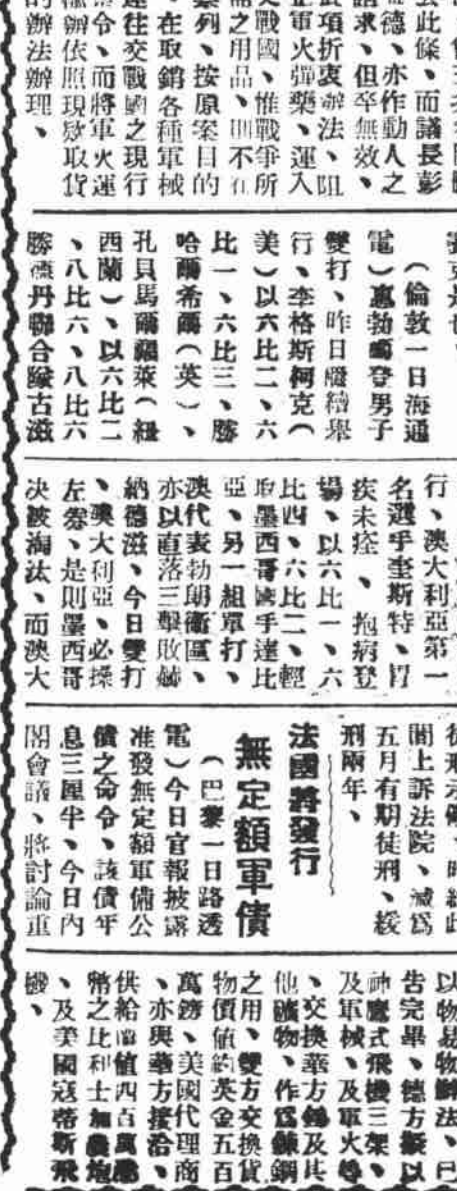 此條、而議長彭
德、亦作動人之
請求、但卒無效、
此項折衷辦法、阻
軍火彈藥、運入
交戰國、惟戰爭所
之用品、則不在
列、按原案目的
、在取銷各種軍械
運往交戰國之現行
令、而將軍火運
輸辦依照現款取貨
的辦法辦理、
(倫敦一日海通
電)惠勃爾登男子
雙打、昨日繼續舉
行、李格斯柯克(
美)以六比二、六
比一、六比三、勝
哈爾希爾(英)、
孔貝馬爾羅萊(紐
西蘭)、以六比二
、八比六、八比六
勝德丹聯合隊古滋
行、澳大利亞第一
名選手奎斯特、因
疾未痊、抱病登
場、以六比一、六
比四、六比二、輕
取墨西哥國手達比
亞、另一組單打、
澳代表勃朗衛區、
亦以直落三擊敗赫
納德滋、今日雙打
、澳大利亞、必操
左劵、是則墨西哥
決被淘汰、而澳大
間上訴法院、減爲
五月有期徒刑、緩
刑兩年、
法國將發行
無定額軍債
(巴黎一日路透
電)今日官報披露
准發無定額軍備公
債之命令、該債年
息三厘半、今日內
閣會議、將討論重
以物易物辦法、已
告完畢、德方擬以
神鷹式飛機三架、
及軍械、及軍火等
、交換華方錫及其
他礦物、作爲鍊鋼
之用、雙方交換貨
物價値約英金五百
萬鎊、美國代理商
、亦與華方接洽、
供給値四百萬
幣之比利士
、及美國寇蒂斯飛
機、